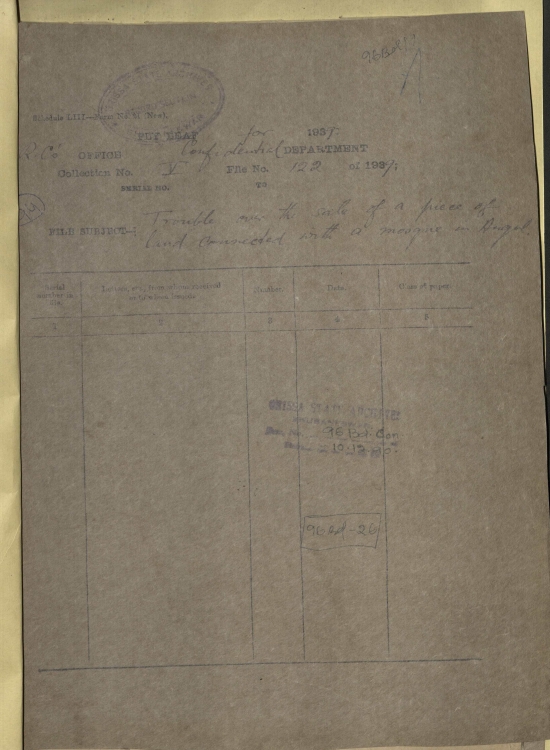 96 Bd
Schedule LIII—Form No.
FLY LEAF for 1937
OFFICE Confidential DEPARTMENT
Collection No. V File No. 122 of 1937
SERIAL NO. TO
FILE SUBJECT— Trouble over the sale of a piece of
land connected with a mosque in Angul.
Serial number in file. Letters, etc., from whom received and to whom Number. Date. Class of paper.
1 2 3 4 5
ORISSA STATE ARCHIVES
96 Bd. Con
10.12.80
96 Bd-26